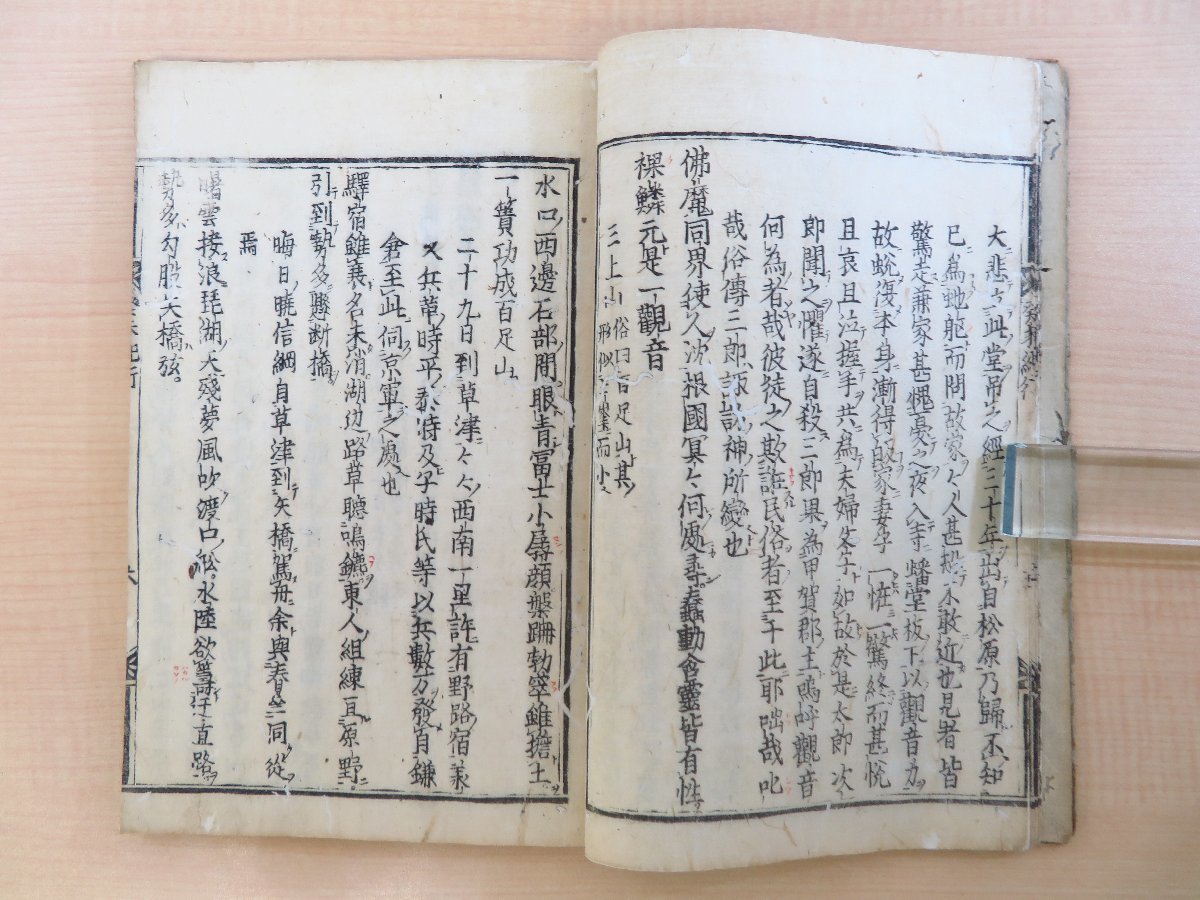 大悲於此堂吊之經三十年出自松原乃歸不知
已為虵軀而問故家々人甚擾不敢近也見者皆
驚走兼家甚愧憂之夜入寺蟠堂板下以觀音力
故蛻復本身漸得皈家妻孥一恠一驚終而甚悅
且哀且泣握手共為夫婦冬六如故於是太郎次
郎聞之懼遂自殺三郎果為甲賀郡主嗚呼觀音
何為者哉彼徒之欺誑民俗者至于此耶咄哉叱
哉俗傳三郎諏訪神所變也
佛魔同界使人沈根國冥々何處尋蠢動含靈皆有性
裸鱗元是一觀音
三上山俗曰百足山其
形似富士而小
水口西邊石部間眼青富士小孱顏盤跚勃窣雖擔土
一簣功成百足山
二十九日到草津々々西南一里許有野路宿承
久兵革時平泰時及子時氏等以兵數万發自鎌
倉至此伺京軍之處也
驛宿雖衰名未消湖边路草聽鳴鑣東人組練亘原野
引到勢多驟断橋
晦日曉信綱自草津到矢橋駕舟余與春是一洞從
焉
曙雲接浪琵琶湖天殘夢風吹渡口舩水陸欲籌迂直路
勢多勾股矢橋弦。